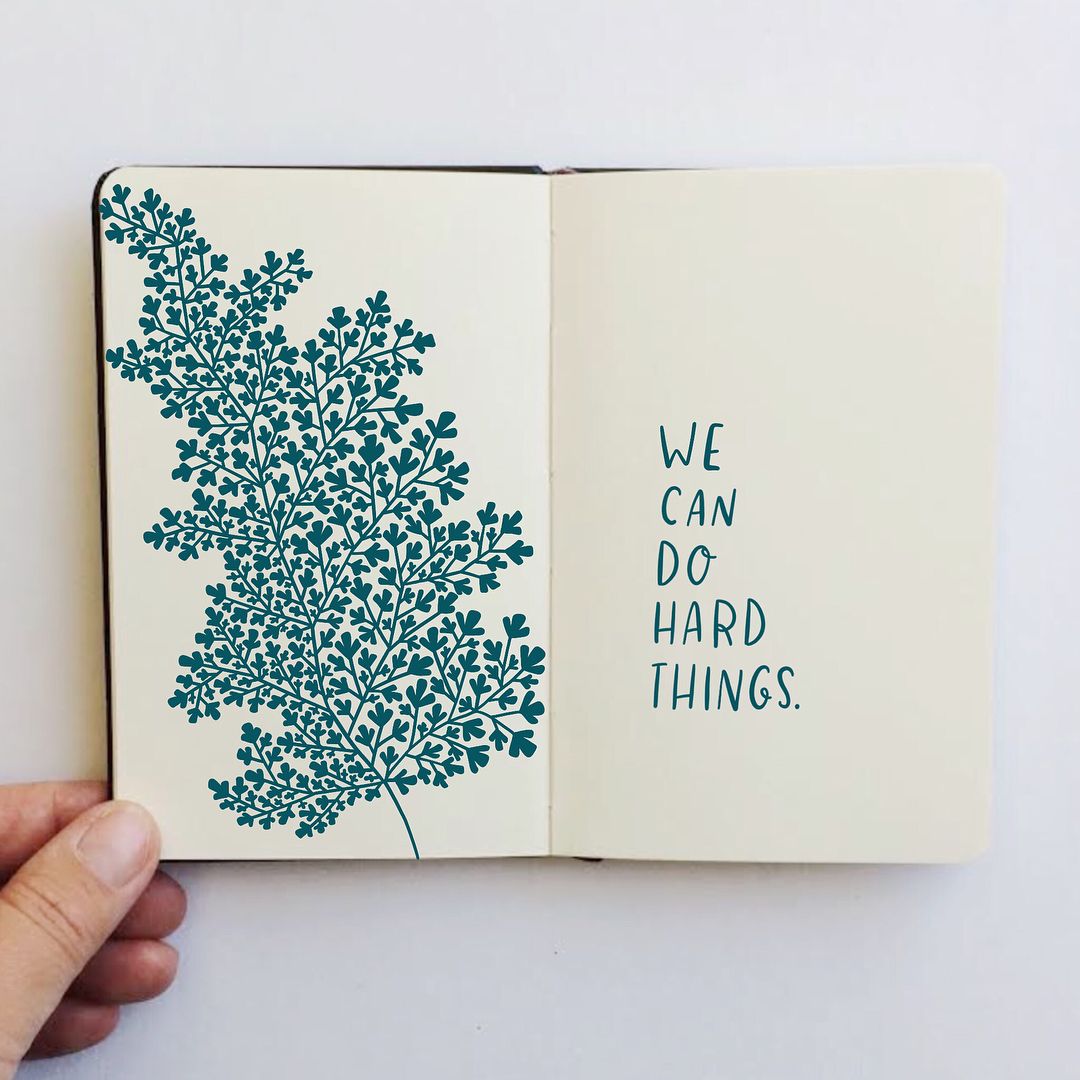 WE
CAN
DO
HARD
THINGS.